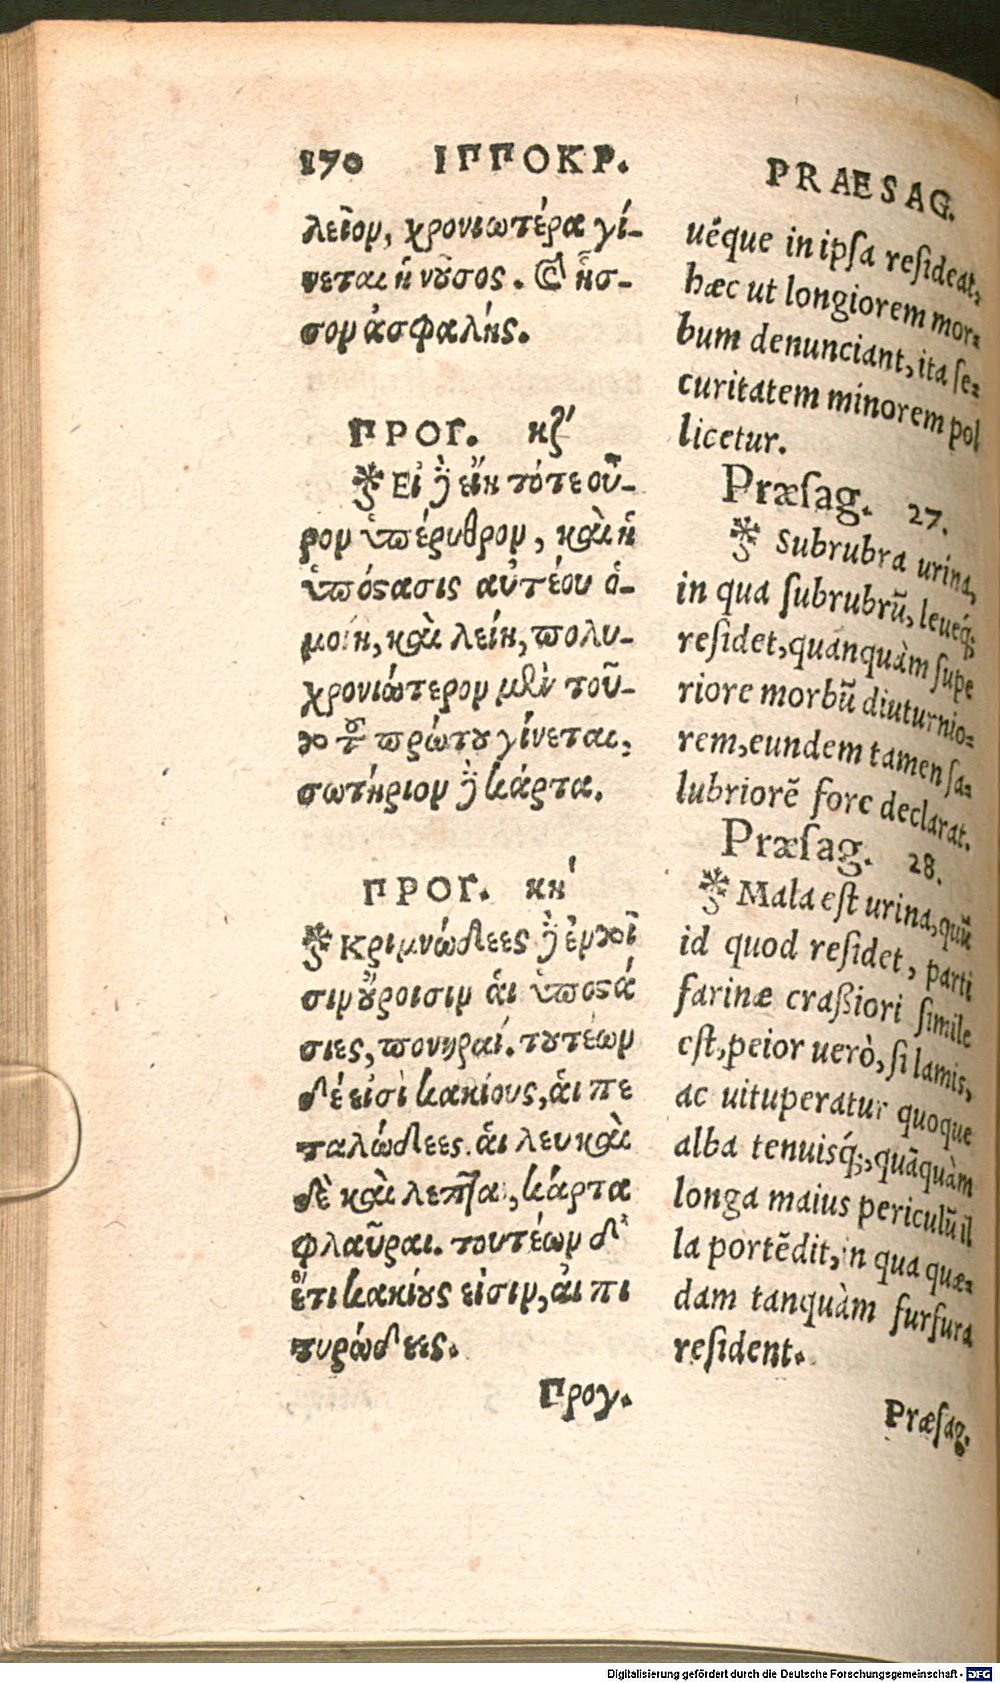 170 ΙΠΠΟΚΡ.
λεῖον, χρονιωτέρα γί-
νεται ἡ νοῦσος. καὶ ἧσ-
σον ἀσφαλής.
ΠΡΟΓ. κζ'
Εἰ δὲ εἴη τότε οὖ-
ρον ὑπέρυθρον, καὶ ἡ
ὑπόστασις αὐτέου ὁ-
μοίη, καὶ λείη, πολυ-
χρονιώτερον μὲν τοῦ-
το τοῦ πρώτου γίνεται,
σωτήριον δὲ κάρτα.
ΠΡΟΓ. κη'
Κριμνώδεες δὲ ἐν τοῖ
σιν οὔροισιν ἁι ὑποστά
σιες, πονηραί. τουτέων
δέ εἰσὶ κακίους, ἁι πε
ταλώδεες. ἁι λευκαὶ
δὲ καὶ λεπταὶ, κάρτα
φλαῦραι. τουτέων δ'
ἔτι κακίους εἰσιν, ἁι πι
τυρώδεες.
Προγ.
PRAESAG.
uéque in ipſa reſideat,
hæc ut longiorem mor-
bum denunciant, ita ſe-
curitatem minorem pol
licetur.
Præſag. 27.
Subrubra urina,
in qua ſubrubrũ, leueq́;
reſidet, quanquàm ſupe
riore morbũ diuturnio-
rem, eundem tamen ſa-
lubriorẽ fore declarat.
Præſag. 28.
Mala eſt urina, quũ
id quod reſidet, parti
farinæ craßiori ſimile
eſt, peior uerò, ſi lamis,
ac uituperatur quoque
alba tenuisq́;, quãquàm
longa maius periculũ il
la portẽdit, in qua quæ-
dam tanquàm furfura
reſident.
Præſag.
Digitalisierung gefördert durch die Deutsche Forschungsgemeinschaft - DFG